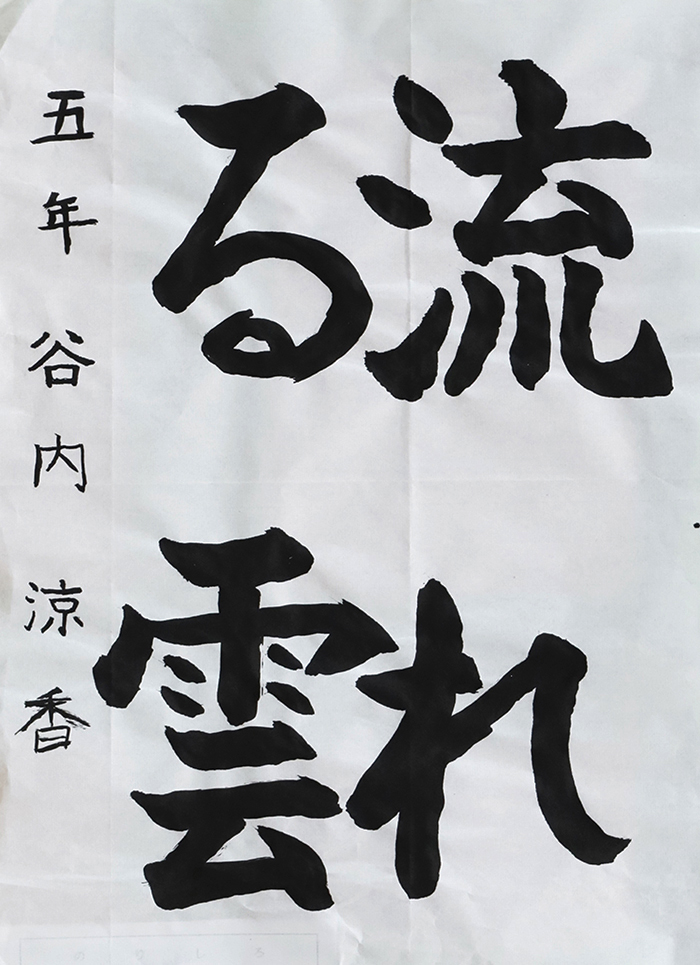 流れ
る雲
五年 谷内 涼香